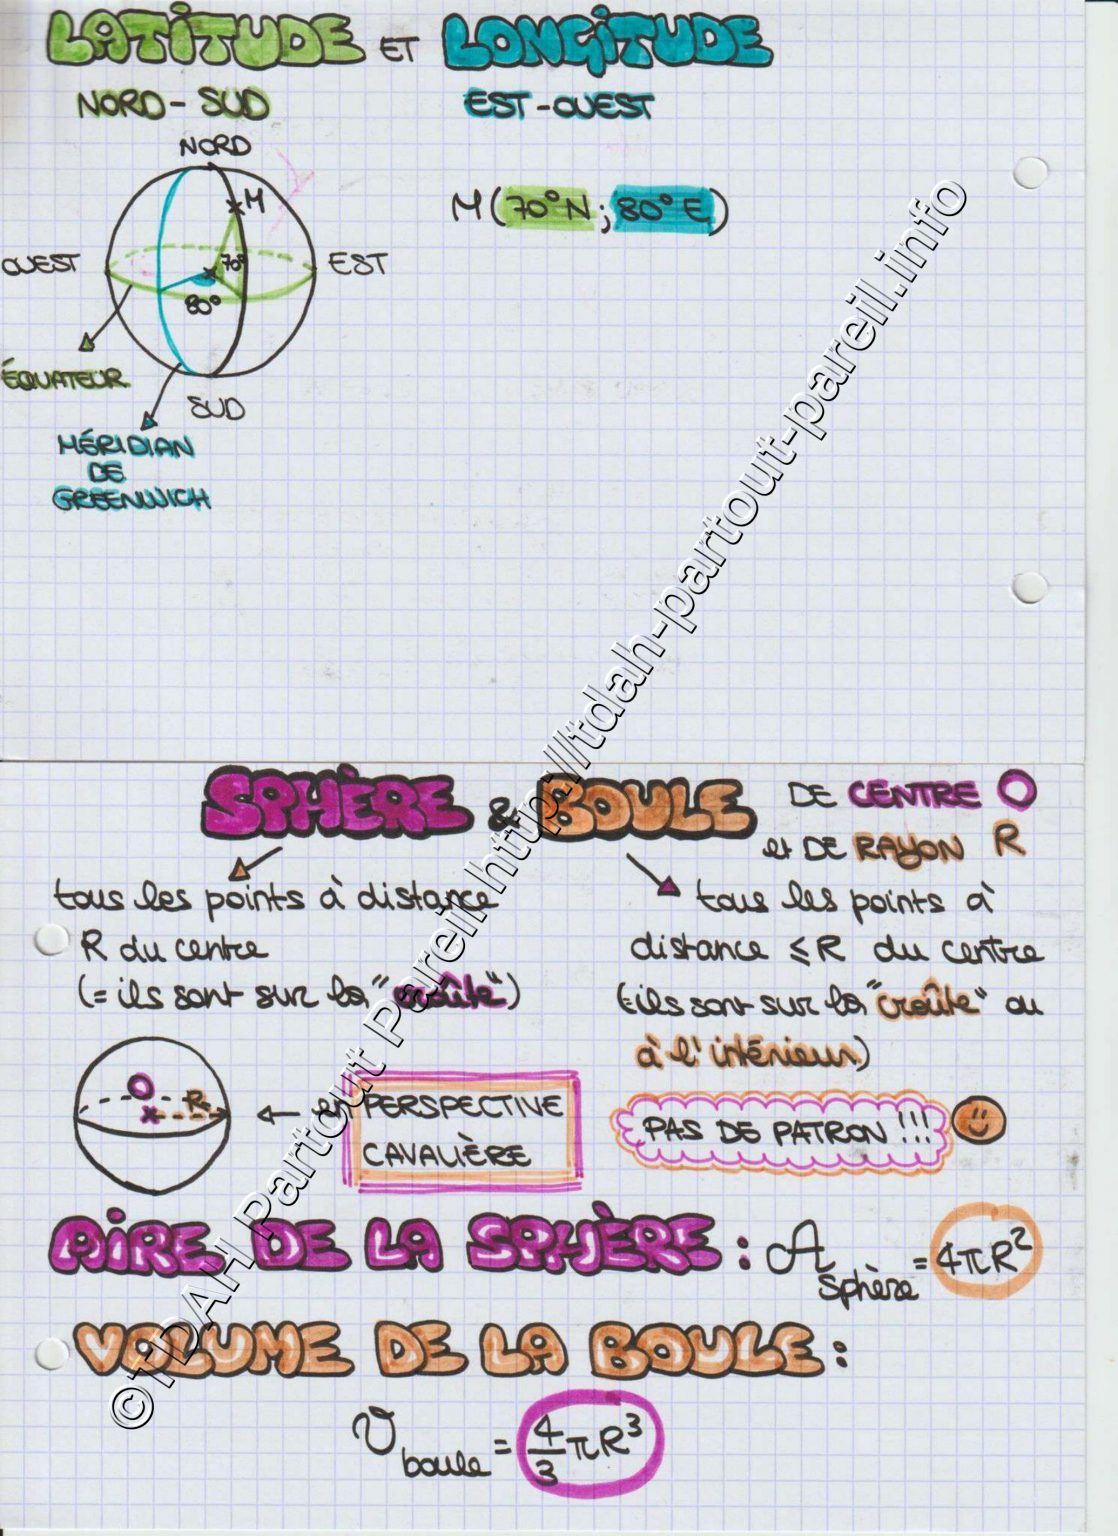 LATITUDE ET LONGITUDE
NORD - SUD
EST - OUEST
NORD
M
M (70°N ; 80°E)
OUEST
EST
70°
80°
ÉQUATEUR
SUD
MÉRIDIAN
DE
GREENWICH
SPHÈRE & BOULE DE CENTRE O
et DE RAYON R
tous les points à distance
R du centre
(= ils sont sur la "croûte")
tous les points à
distance ≤ R du centre
(= ils sont sur la "croûte" ou
à l'intérieur)
O
R
en PERSPECTIVE
CAVALIÈRE
PAS DE PATRON !!!
AIRE DE LA SPHÈRE : A sphère = 4πR²
VOLUME DE LA BOULE :
V boule = 4/3 πR³
©TDAH Partout Pareil http://tdah-partout-pareil.info